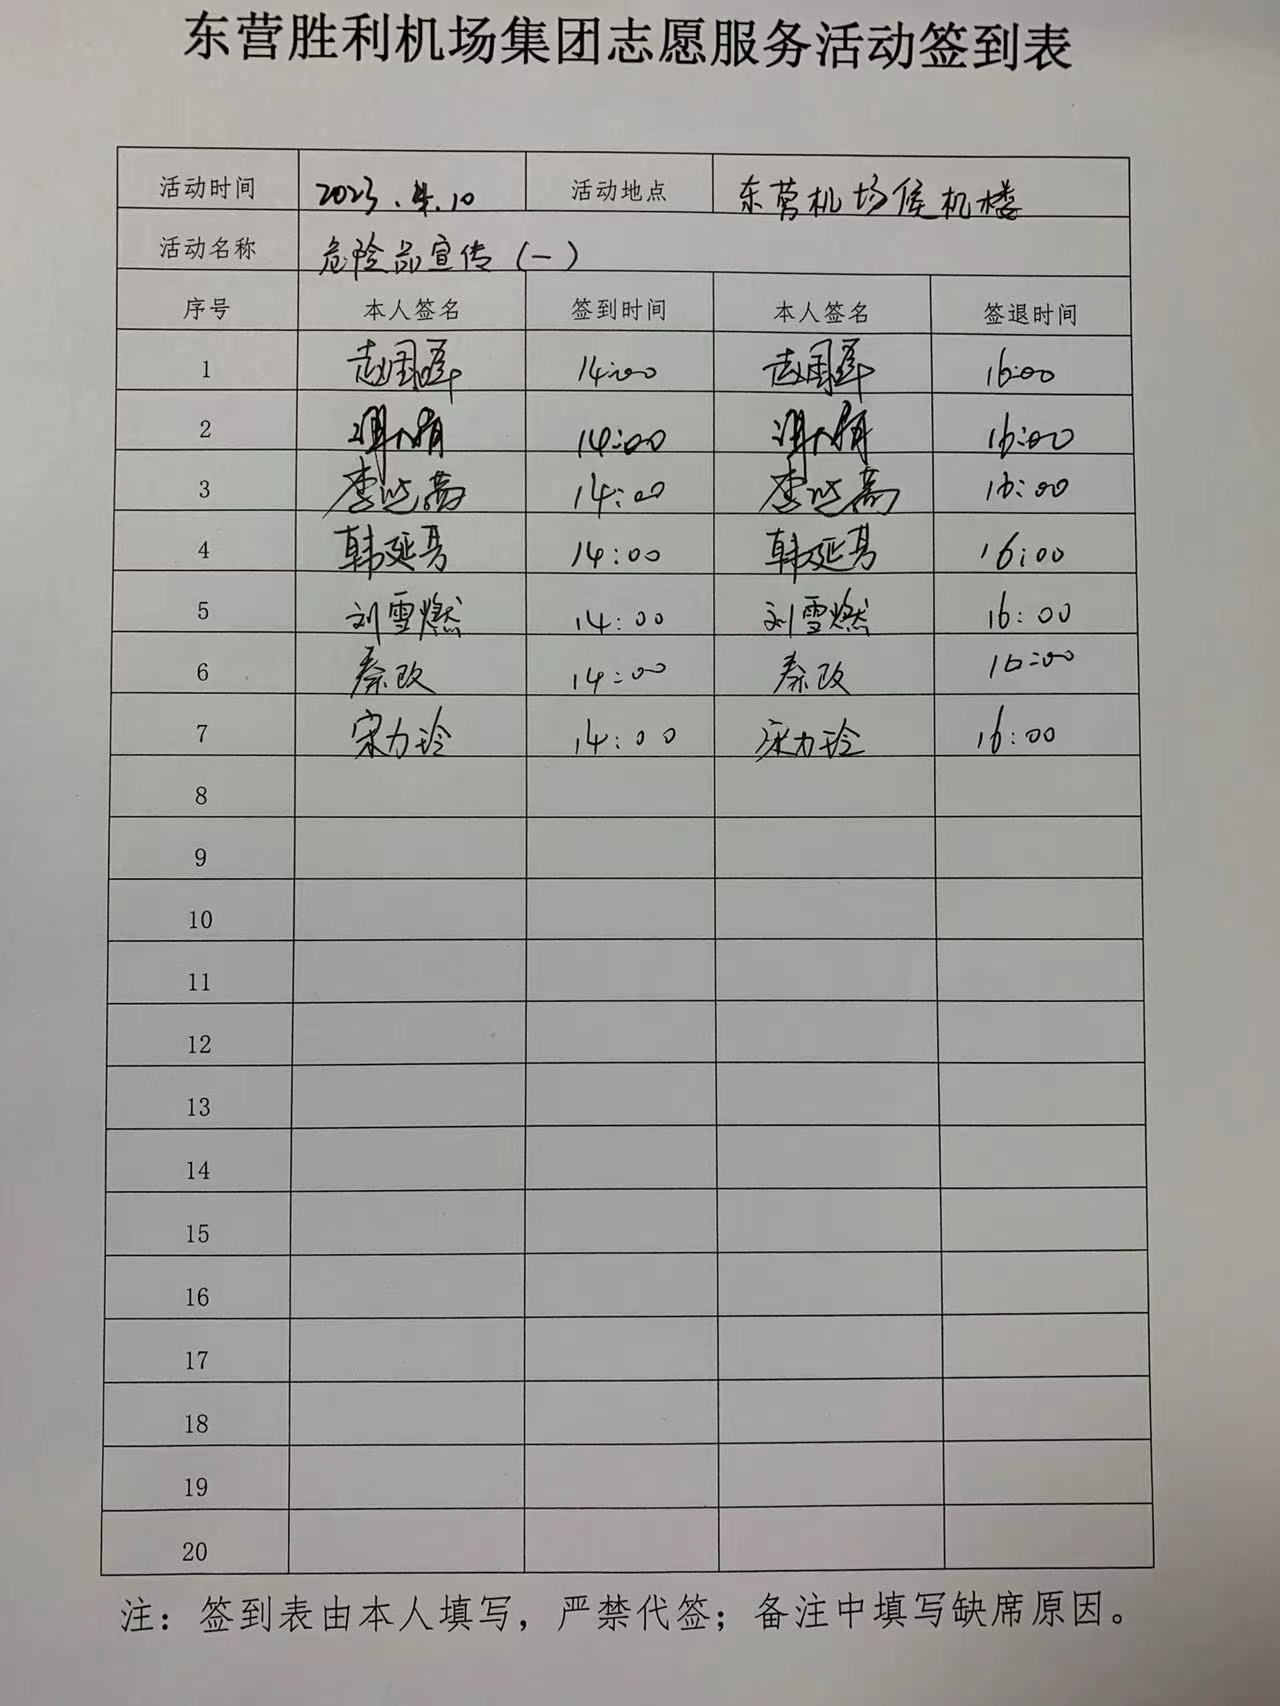 东营胜利机场集团志愿服务活动签到表
活动时间 2023.4.10 活动地点 东营机场候机楼
活动名称 危险品宣传(一)
序号 本人签名 签到时间 本人签名 签退时间
1 赵国军 14:00 赵国军 16:00
2 14:00 16:00
3 李 14:00 李 16:00
4 韩延 14:00 韩延 16:00
5 刘雪燃 14:00 刘雪燃 16:00
6 秦改 14:00 秦改 16:00
7 宋力玲 14:00 宋力玲 16:00
8
9
10
11
12
13
14
15
16
17
18
19
20
注：签到表由本人填写，严禁代签；备注中填写缺席原因。